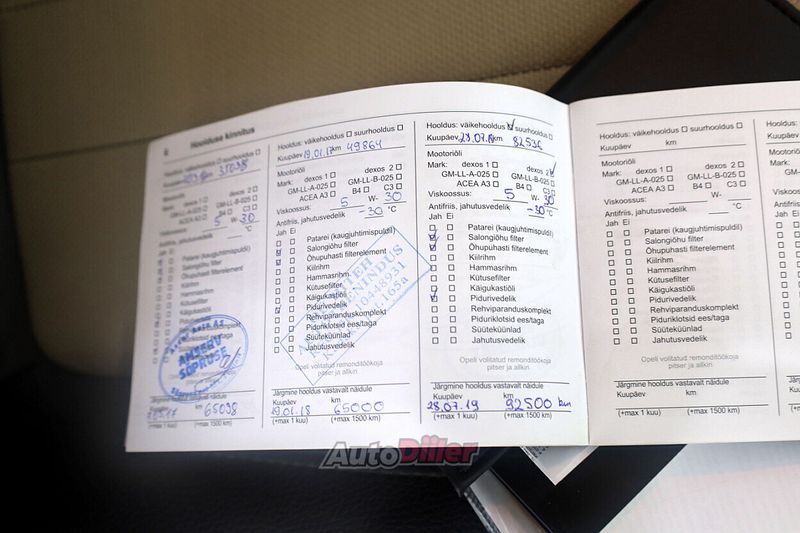 6. Hoolduse kinnitus
Hooldus: väikehooldus suurhooldus
Kuupäev km 35098
Mootoriõli
Mark: dexos 1 dexos 2
GM-LL-A-025 GM-LL-B-025
ACEA A3 B4 C3
Viskoossus: 5 W- 30
Antifriis, jahutusvedelik °C
Jah Ei
Patarei (kaugjuhtimispuldil)
Salongiõhu filter
Õhupuhasti filterelement
Kiilrihm
Hammasrihm
Kütusefilter
Käigukastiõli
Pidurivedelik
Rehviparanduskomplekt
Piduriklotsid ees/taga
Süüteküünlad
Jahutusvedelik
AMSERV
Järgmine hooldus vastavalt näidule
Kuupäev km
65098
(+max 1 kuu) (+max 1500 km)
Hooldus: väikehooldus suurhooldus
Kuupäev 19.01.17 km 49864
Mootoriõli
Mark: dexos 1 dexos 2
GM-LL-A-025 GM-LL-B-025
ACEA A3 B4 C3
Viskoossus: 5 W- 30
Antifriis, jahutusvedelik -30 °C
Jah Ei
Patarei (kaugjuhtimispuldil)
Salongiõhu filter
Õhupuhasti filterelement
Kiilrihm
Hammasrihm
Kütusefilter
Käigukastiõli
Pidurivedelik
Rehviparanduskomplekt
Piduriklotsid ees/taga
Süüteküünlad
Jahutusvedelik
Opeli volitatud remonditöökoja
pitser ja allkiri
Järgmine hooldus vastavalt näidule
Kuupäev km
19.01.18 65000
(+max 1 kuu) (+max 1500 km)
Hooldus: väikehooldus suurhooldus
Kuupäev 28.07.18 km 82536
Mootoriõli
Mark: dexos 1 dexos 2
GM-LL-A-025 GM-LL-B-025
ACEA A3 B4 C3
Viskoossus: 5 W- 30
Antifriis, jahutusvedelik -30 °C
Jah Ei
Patarei (kaugjuhtimispuldil)
Salongiõhu filter
Õhupuhasti filterelement
Kiilrihm
Hammasrihm
Kütusefilter
Käigukastiõli
Pidurivedelik
Rehviparanduskomplekt
Piduriklotsid ees/taga
Süüteküünlad
Jahutusvedelik
Opeli volitatud remonditöökoja
pitser ja allkiri
Järgmine hooldus vastavalt näidule
Kuupäev km
28.07.19 92500 km
(+max 1 kuu) (+max 1500 km)
Hooldus: väikehooldus suurhooldus
Kuupäev km
Mootoriõli
Mark: dexos 1 dexos 2
GM-LL-A-025 GM-LL-B-025
ACEA A3 B4 C3
Viskoossus: W-
Antifriis, jahutusvedelik °C
Jah Ei
Patarei (kaugjuhtimispuldil)
Salongiõhu filter
Õhupuhasti filterelement
Kiilrihm
Hammasrihm
Kütusefilter
Käigukastiõli
Pidurivedelik
Rehviparanduskomplekt
Piduriklotsid ees/taga
Süüteküünlad
Jahutusvedelik
Opeli volitatud remonditöökoja
pitser ja allkiri
Järgmine hooldus vastavalt näidule
Kuupäev km
(+max 1 kuu) (+max 1500 km)
AutoDiiler